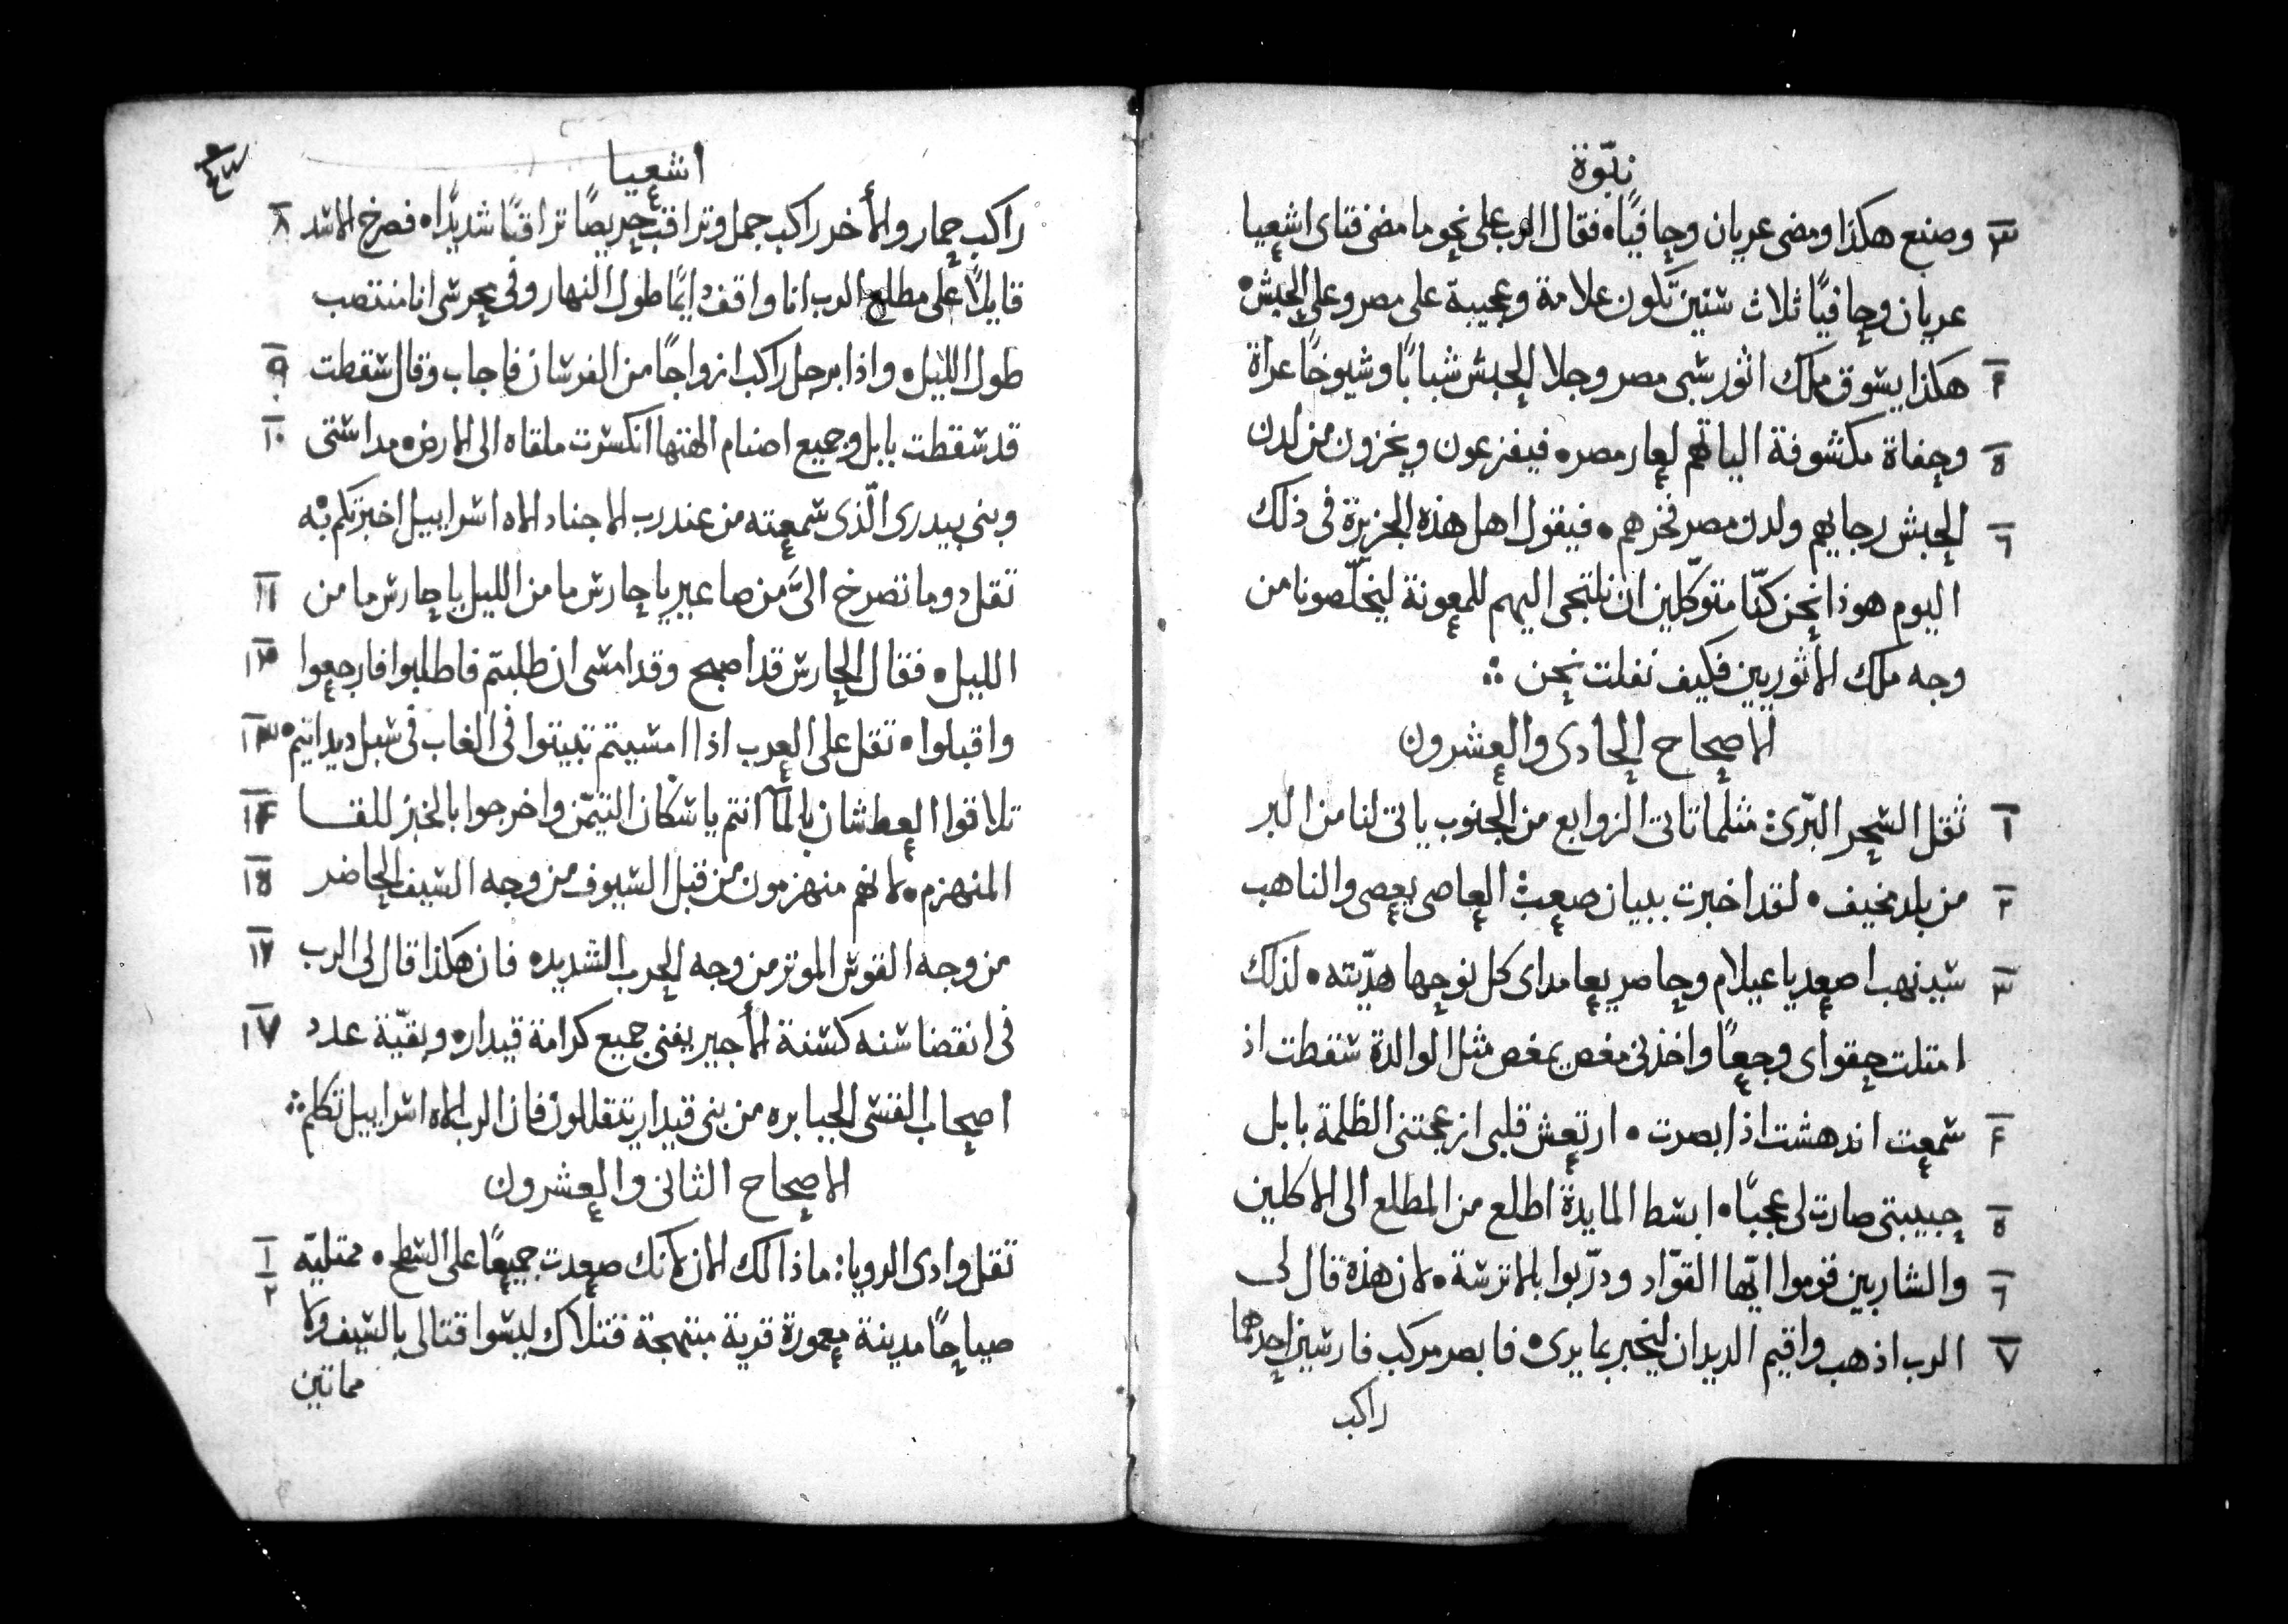 نبوّة
٣ وصنع هكذا ومضى عريان وحافيًا ه فقال الرب على نحو ما مضى فتاى اشعيا
عريان وحافيًا ثلاث سنين تكون علامة وعجيبة على مصر وعلى الحبش ه
٤ هكذا يسوق ملك اثور سبى مصر وجلا الحبش شبابًا وشيوخًا عراة
٥ وحفاة مكشوفة الياتهم لعار مصر ه فيفزعون ويخزون من لدن
٦ الحبش رجايهم ولدن مصر فخرهم ه فيقول اهل هذه الجزيرة فى ذلك
اليوم هوذا نحن كنّا متوكّلين ان نلتجى اليهم للمعونة ليخلّصونا من
وجه ملك الأثوريين فكيف نفلت نحن ؞
الاصحاح الحادى والعشرون
١ ثقل البحر البرّى: مثلما تاتى الزوابع من الجنوب ياتى لنا من البر
٢ من بلد مخيف ه لقد اخبرت ببيان صعب: العاصى يعصى والناهب
٣ سينهب اصعد يا عيلام وحاصر يعا مداى كل نوحها هدّيته ه لذلك
امتلت حقواى وجعًا واخذنى مغص يمغص مثل الوالدة سقطت اذ
٤ سمعت اندهشت اذ ابصرت ه ارتعش قلبى ازعجتنى الظلمة بابل
٥ حبيبتى صارت لى عجبًا ه ابسط المايدة اطلع من المطلع الى الاكلين
٦ والشاربين قوموا ايّها القوّاد ودرّبوا بالاترسة ه لان هذه قال لى
٧ الرب اذهب واقيم الديدان ليخبر بما يرى ه فابصر مركب فارسين احدهما
راكب
اشعيا
٨ راكب حمار والأخر راكب جمل وتراقب حريصًا تراقبًا شديدًا ه فصرخ الاسد
قايلًا على مطلع الرب انا واقف دايمًا طول النهار وفى محرسى انا منتصب
٩ طول الليل ه واذا برجل راكب ازواجًا من الفرسان فاجاب وقال سقطت
١٠ قد سقطت بابل وجميع اصنام الهتها انكسرت ملقاه الى الارض ه مداستى
وبنى بيدرى الّذى سمعته من عند رب الاجناد الاه اسراييل اخبرتكم به
١١ ثقل دوما تصرخ الىَّ من صاعير يا حارس ما من الليل يا حارس ما من
١٢ الليل ه فقال الحارس قد اصبح وقد امسى ان طلبتم فاطلبوا فارجعوا
١٣ واقبلوا ه ثقل على العرب اذا امسيتم تبيتوا فى الغاب فى سبل ديدانيم ه
١٤ تلاقوا العطشان بالمآ انتم يا سكان التيمّن واخرجوا بالخبز للقا
١٥ المنهزم ه لانهم منهزمون من قبل السيوف من وجه السيف الحاضر
١٦ من وجه القوس الموتر من وجه الحرب الشديد ه فان هكذا قال لى الرب
١٧ فى انقضا سنه كسنة الأجير يفنى جميع كرامة قيدار ه وبقيّة عدد
اصحاب القسى الجبابره من بنى قيدار يتقللون فان الرب الاه اسراييل تكلم ؞
الاصحاح الثانى والعشرون
١ ٢ ثقل وادى الرويا: ماذا لك الان لانك صعدت جميعًا على السطح ه ممتليّة
صياحًا مدينة معمورة قرية مبتهجة قتلاك ليسوا قتالى بالسيف ولا
مماتين